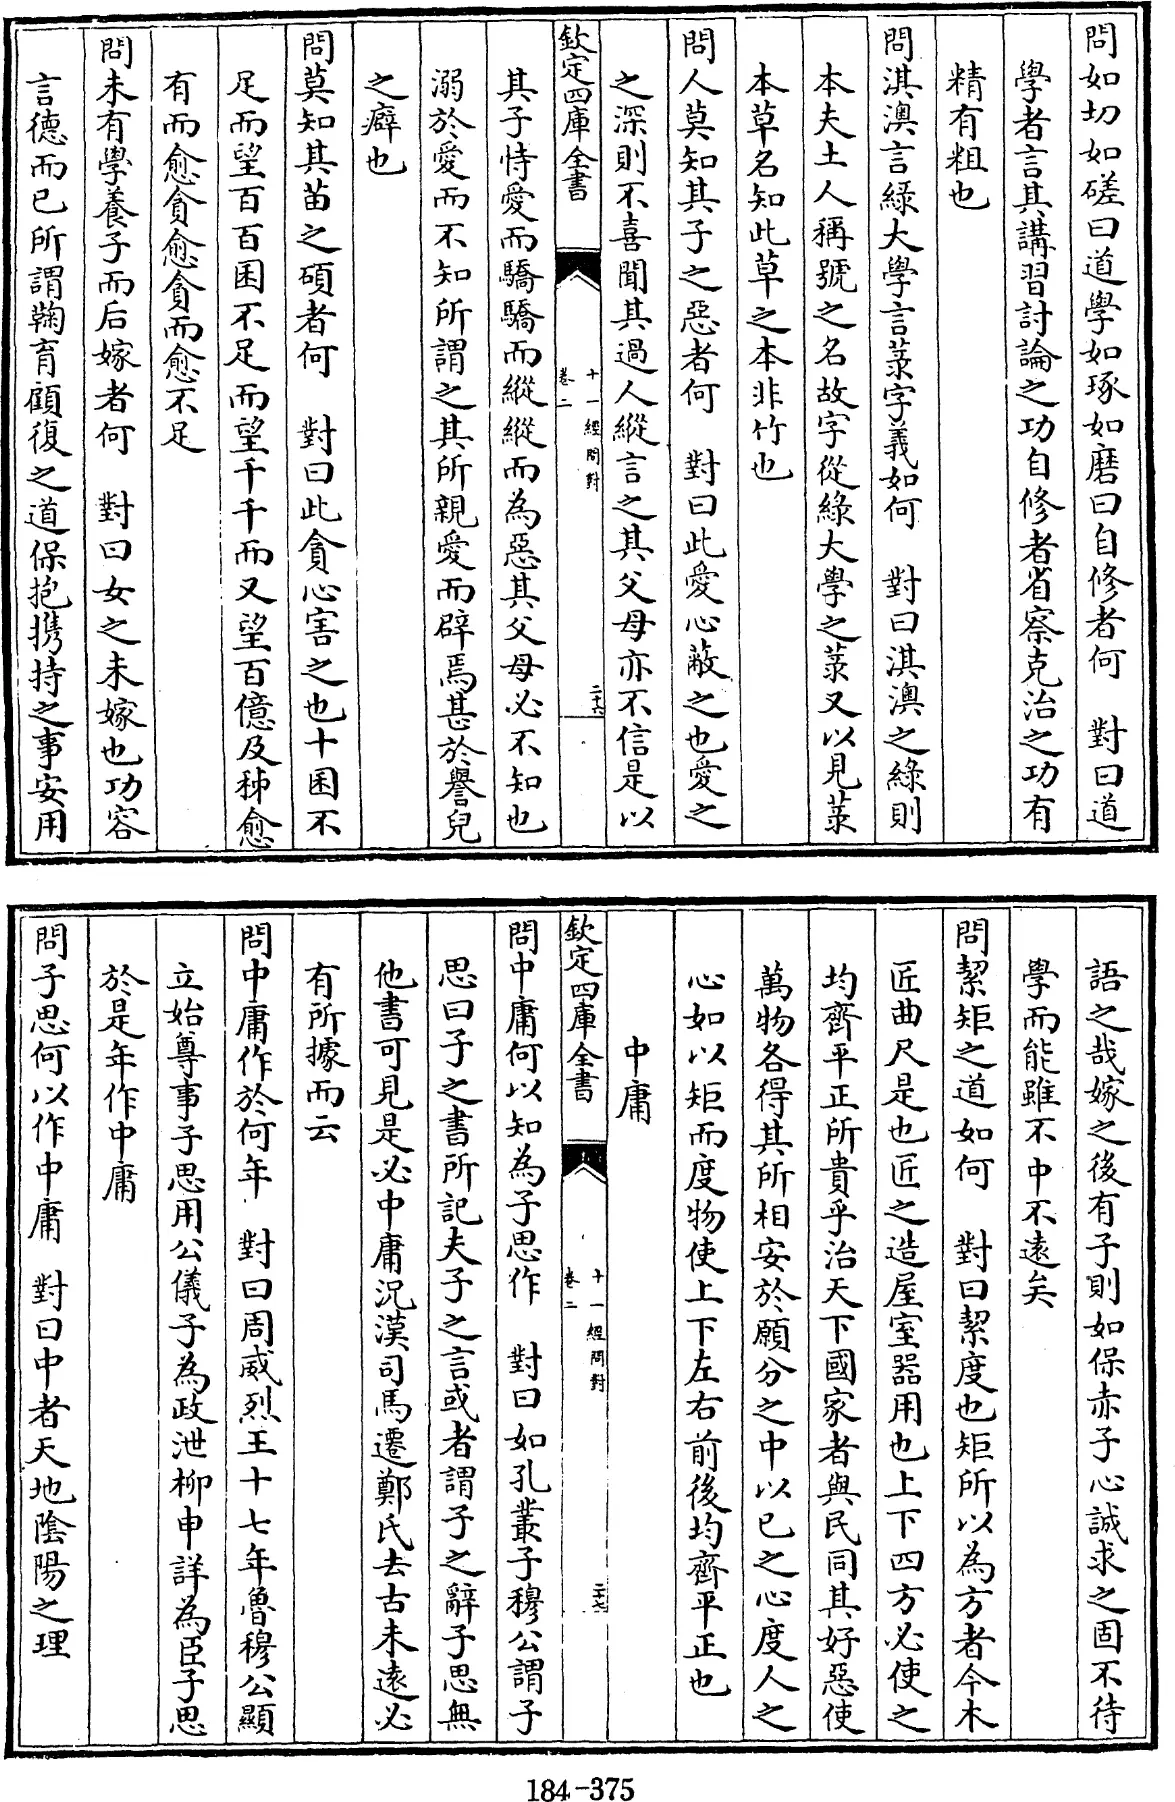 問如切如磋曰道學如琢如磨曰自修者何　對曰道
學者言其講習討論之功自修者省察克治之功有
精有粗也
問淇澳言綠大學言菉字義如何　對曰淇澳之綠則
本夫土人稱號之名故字從綠大學之菉又以見菉
本草名知此草之本非竹也
問人莫知其子之惡者何　對曰此愛心蔽之也愛之
之深則不喜聞其過人縱言之其父母亦不信是以
欽定四庫全書　十一經問對　卷二　二十六
其子恃愛而驕驕而縱縱而為惡其父母必不知也
溺於愛而不知所謂之其所親愛而辟焉甚於譽兒
之癖也
問莫知其苗之碩者何　對曰此貪心害之也十囷不
足而望百百囷不足而望千千而又望百億及秭愈
有而愈貪愈貪而愈不足
問未有學養子而后嫁者何　對曰女之未嫁也功容
言德而已所謂鞠育顧復之道保抱攜持之事安用
語之哉嫁之後有子則如保赤子心誠求之固不待
學而能雖不中不遠矣
問絜矩之道如何　對曰絜度也矩所以為方者今木
匠曲尺是也匠之造屋室器用也上下四方必使之
均齊平正所貴乎治天下國家者與民同其好惡使
萬物各得其所相安於願分之中以己之心度人之
心如以矩而度物使上下左右前後均齊平正也
中庸
欽定四庫全書　十一經問對　卷二　二十七
問中庸何以知為子思作　對曰如孔叢子穆公謂子
思曰子之書所記夫子之言或者謂子之辭子思無
他書可見是必中庸況漢司馬遷鄭氏去古未遠必
有所據而云
問中庸作於何年　對曰周威烈王十七年魯穆公顯
立始尊事子思用公儀子為政泄柳申詳為臣子思
於是年作中庸
問子思何以作中庸　對曰中者天地陰陽之理
184-375